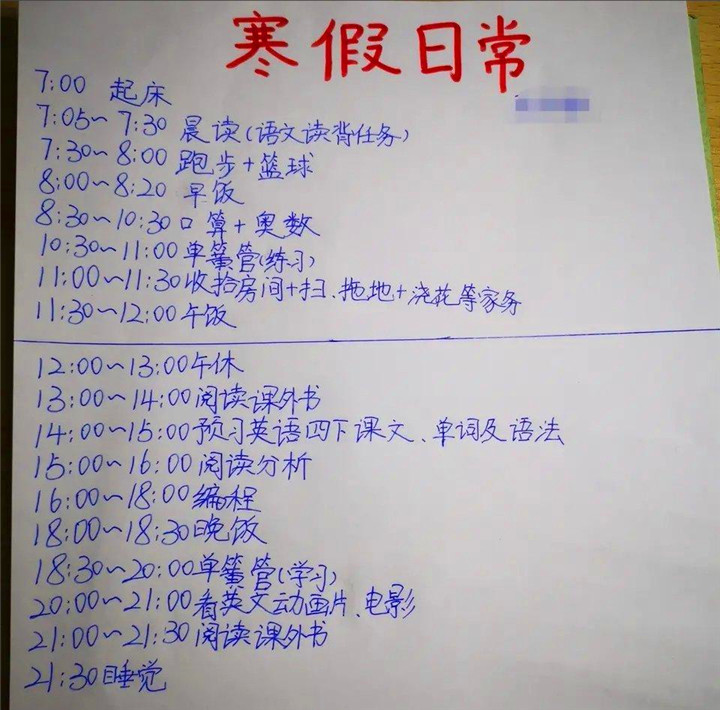 寒假日常
7:00 起床
7:05~7:30 晨读(语文读背任务)
7:30~8:00 跑步+篮球
8:00~8:20 早饭
8:30~10:30 口算+奥数
10:30~11:00 单簧管(练习)
11:00~11:30 收拾房间+扫、拖地+浇花等家务
11:30~12:00 午饭
12:00~13:00 午休
13:00~14:00 阅读课外书
14:00~15:00 预习英语四下课文、单词及语法
15:00~16:00 阅读分析
16:00~18:00 编程
18:00~18:30 晚饭
18:30~20:00 单簧管(学习)
20:00~21:00 看英文动画片、电影
21:00~21:30 阅读课外书
21:30 睡觉